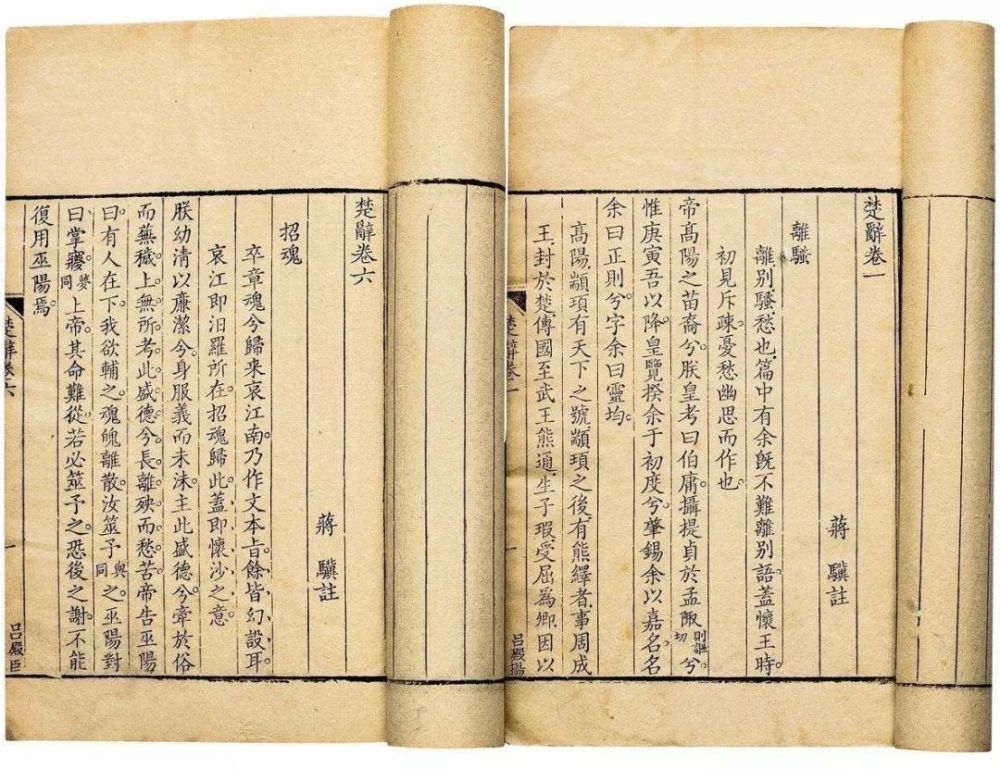 楚辭卷一
蔣驥註
離騷
離別騷愁也篇中有余旣不難離別語蓋懷王時
初見斥疎憂愁幽思而作也
帝高陽之苗裔兮朕皇考曰伯庸攝提貞於孟陬則諏切兮
惟庚寅吾以降皇覽揆余于初度兮肇錫余以嘉名名
余曰正則兮字余曰靈均
高陽顓頊有天下之號顓頊之後有熊繹者事周成
王封於楚傳國至武王熊通生子瑕受屈為卿因以
楚辭卷一
一
呂殿揚
楚辭卷六
蔣驥註
招魂
卒章魂兮歸来哀江南乃作文本旨餘皆幻設耳
哀江即汨羅所在招魂歸此蓋即懷沙之意
朕幼清以廉潔兮身服義而未沬主此盛德兮牽於俗
而蕪穢上無所考此盛德兮長離殃而愁苦帝告巫陽
曰有人在下我欲輔之魂魄離散汝筮予與同之巫陽對
曰掌㝱夢同上帝其命難從若必筮予之恐後之謝不能
復用巫陽焉
楚辭卷六
一
呂殿臣